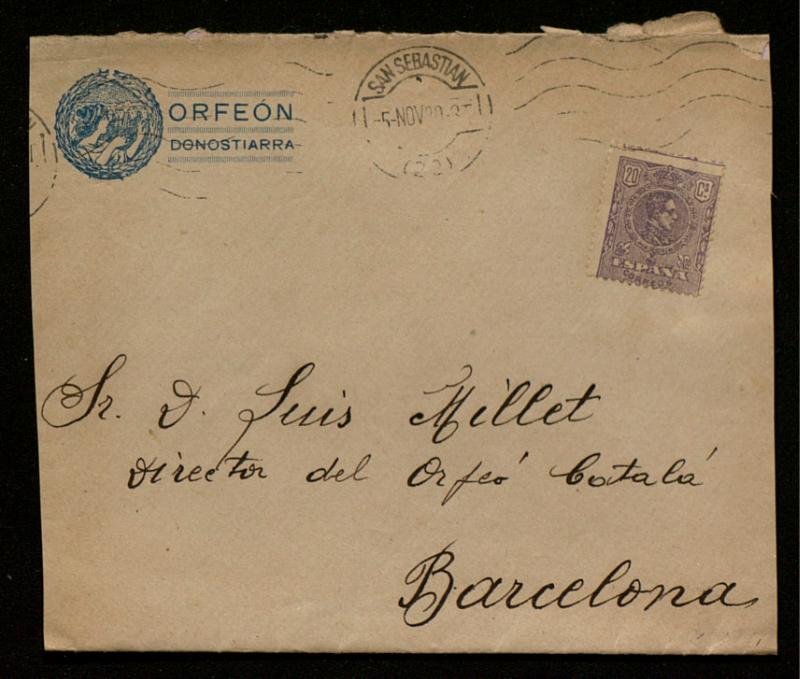 ORFEÓN
DONOSTIARRA
SAN SEBASTIAN
-5-NOV20
(22)
20 Cs
ESPAÑA
CORREOS
Sr. D. Luis Millet
Director del Orfeó Catalá
Barcelona